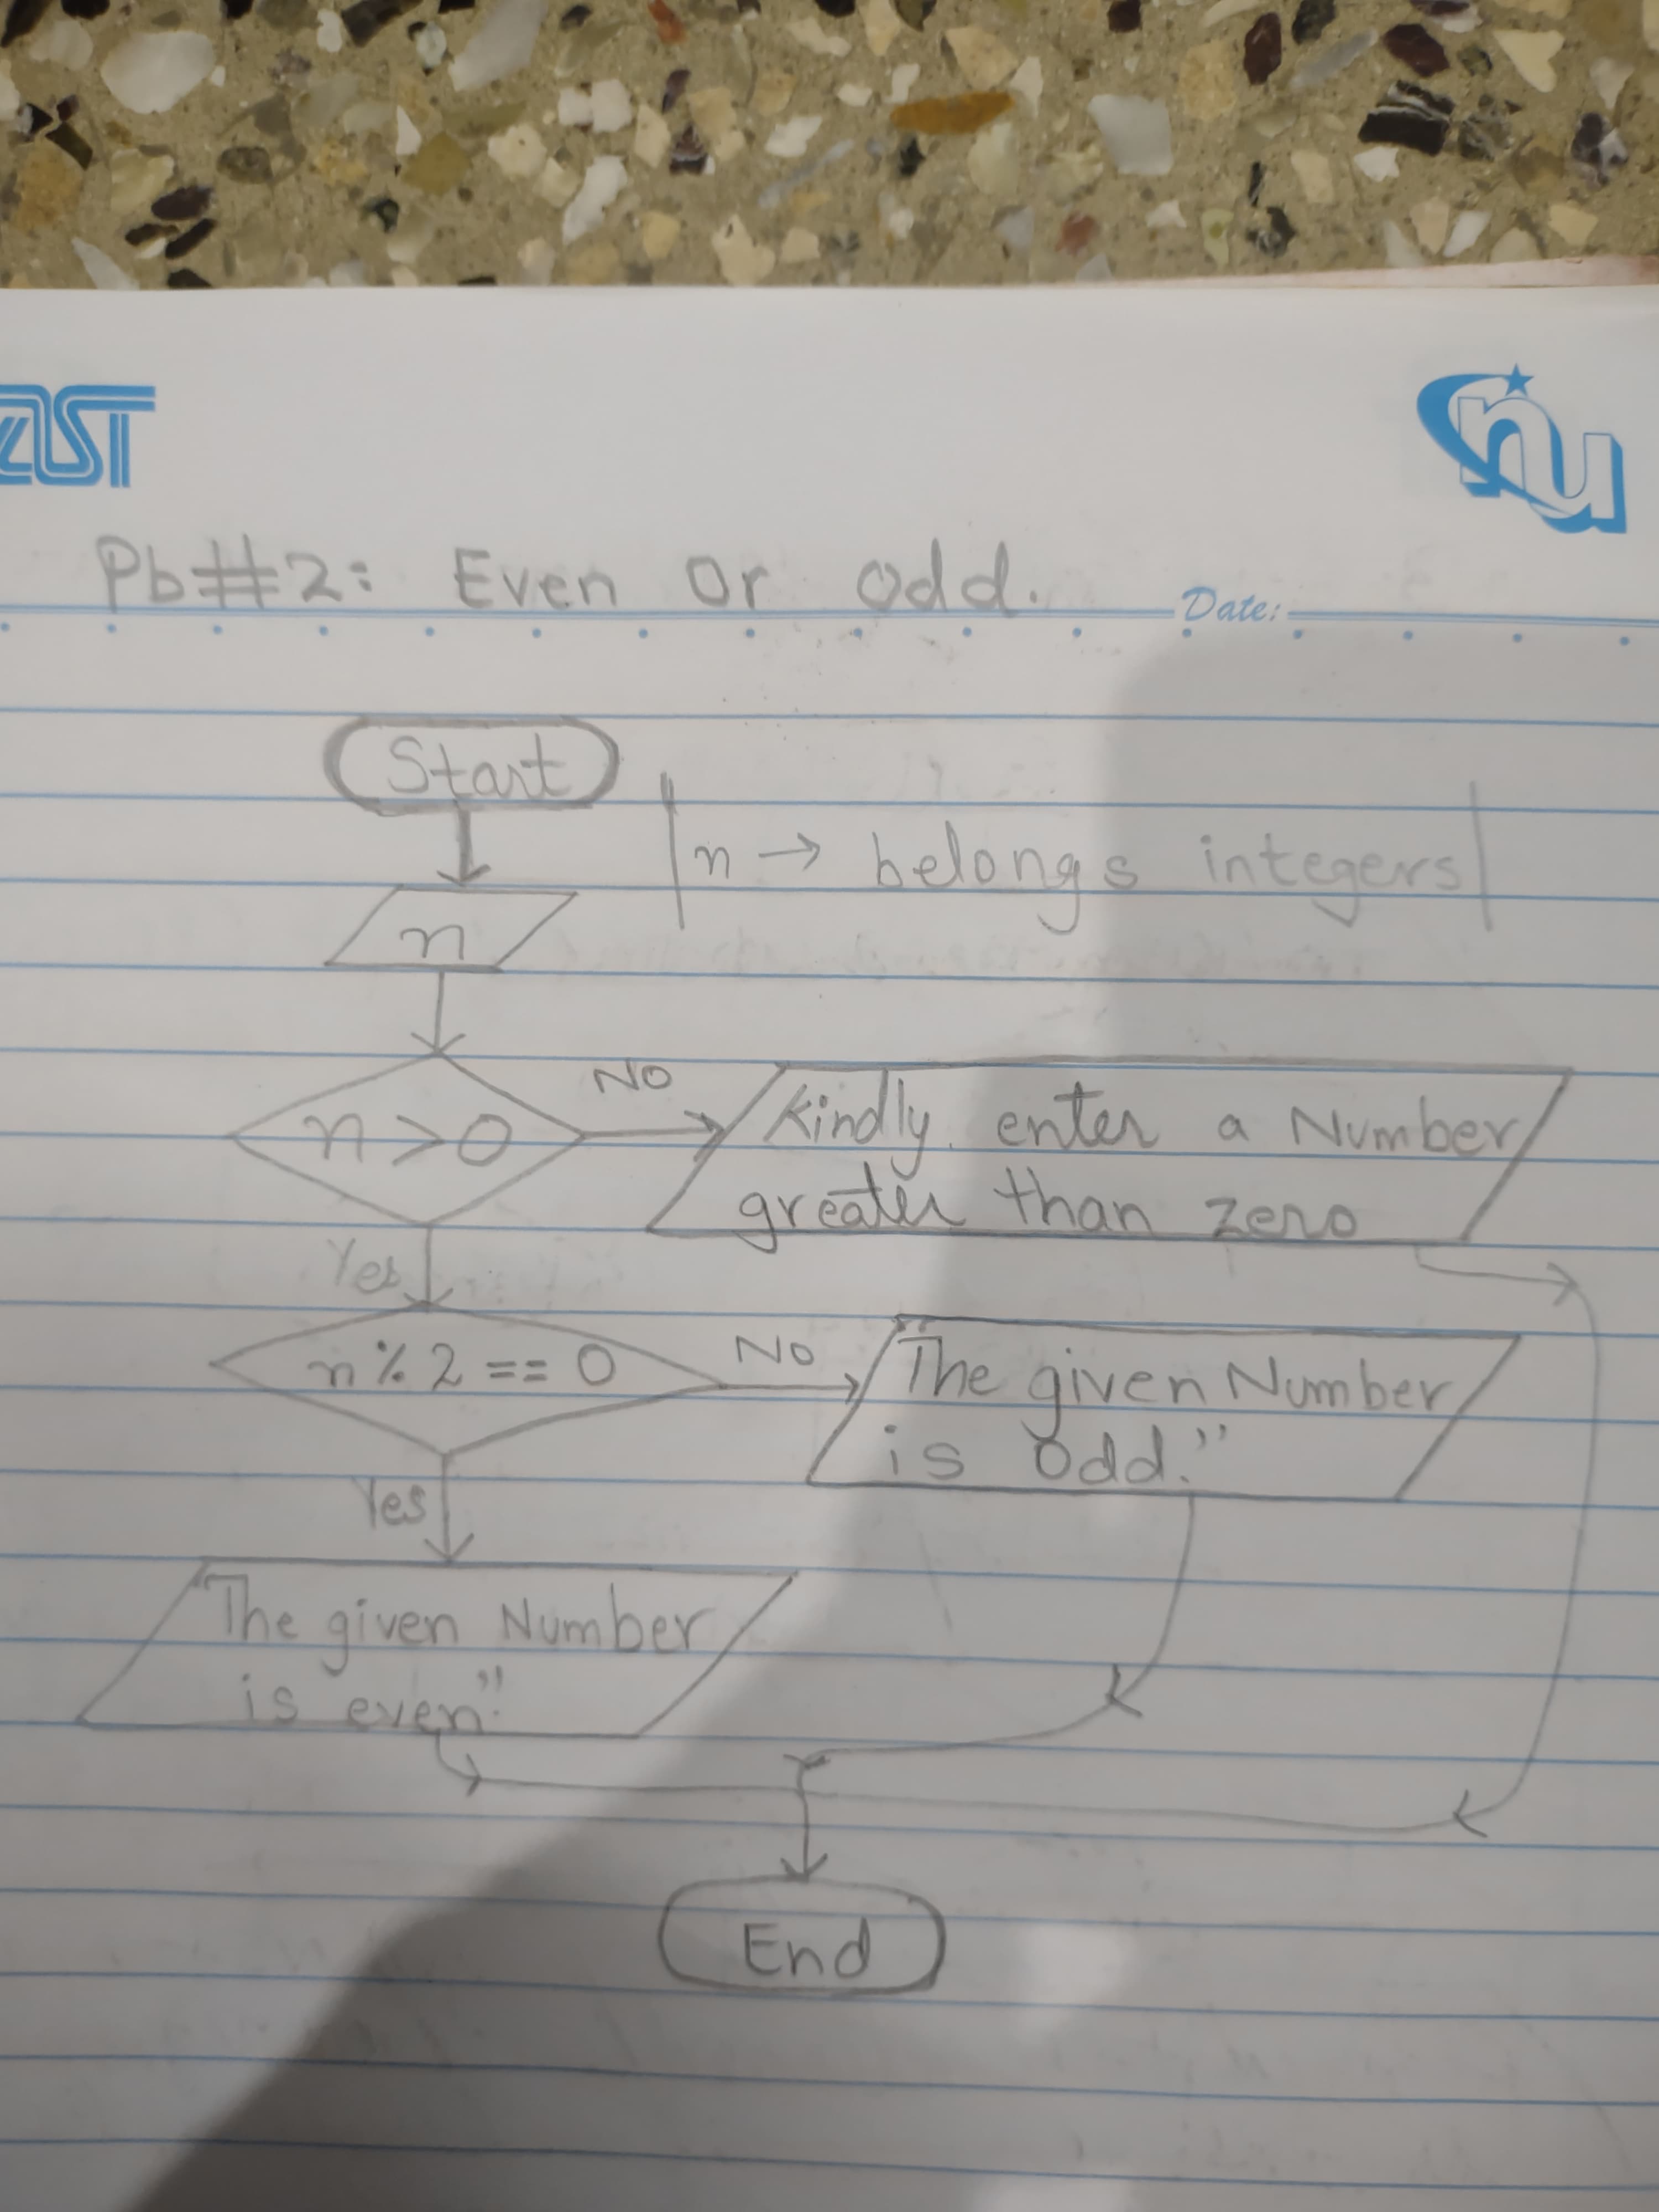 Pb#2: Even Or Odd.
Date:
Start
n → belongs integers
n
n > 0
NO
Kindly enter a Number
greater than zero
Yes
n % 2 == 0
NO
"The given Number
is odd."
Yes
"The given Number
is even."
End